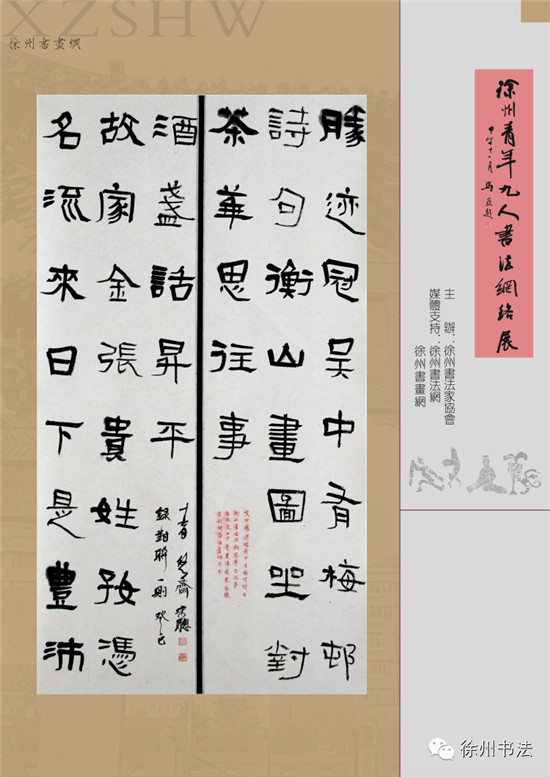 XZSHW
徐州書畫網
徐州青年九人書法網絡展
主　辦：徐州書法家協會
媒體支持：徐州書法網
徐州書畫網
勝迹冠吴中有梅邨
詩句衡山畫圖坐對
茶華思往事
名流來日下是豐沛
故家金張貴姓好憑
酒盞話昇平
録對聯一則
徐州书法